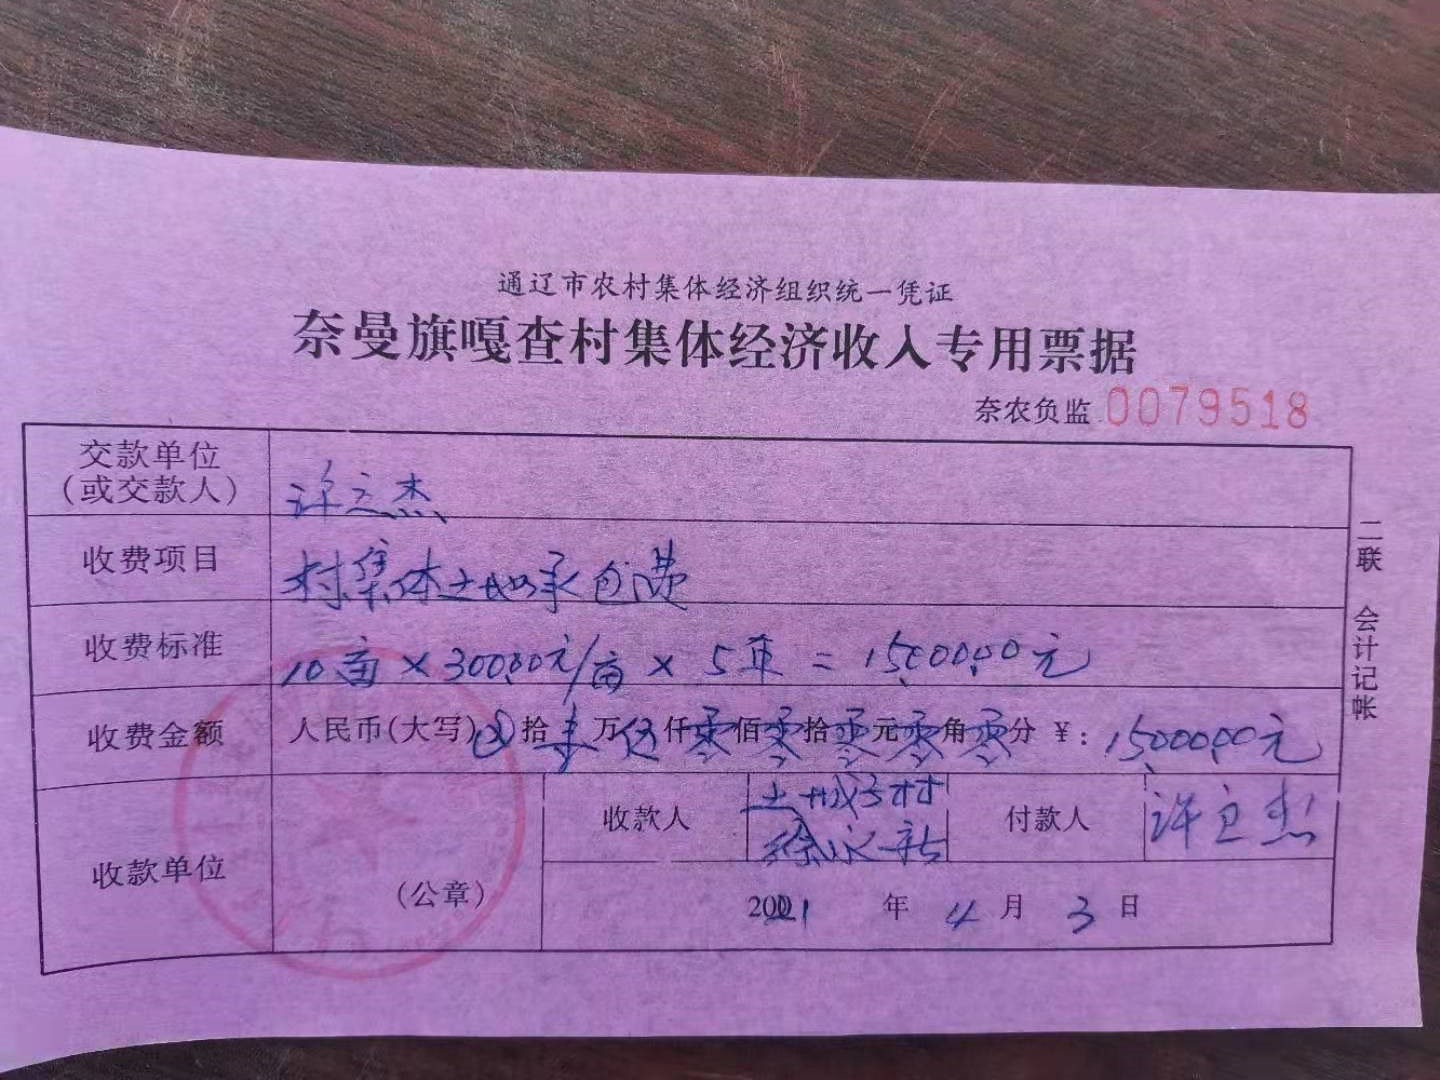 通辽市农村集体经济组织统一凭证
奈曼旗嘎查村集体经济收入专用票据
奈农负监 0079518
交款单位
(或交款人)
许立杰
收费项目
村集体土地承包费
收费标准
10亩×300.00元/亩×5年=15000.00元
收费金额
人民币(大写)⊗拾壹万伍仟零佰零拾零元零角零分 ¥:15000.00元
收款单位
(公章)
收款人
土城子村
徐永新
付款人
许立杰
2021 年 4 月 3 日
二联 会计记帐